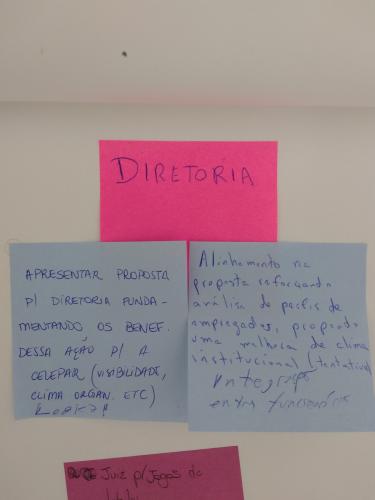 DIRETORIA
APRESENTAR PROPOSTA
P/ DIRETORIA FUNDA-
MENTANDO OS BENEF.
DESSA AÇÃO P/ A
CELEPAR (VISIBILIDADE,
CLIMA ORGAN. ETC)
Alinhamento na
proposta reforçando
análise de perfis de
empregados, propondo
uma melhora de clima
institucional (tentativa)
integração
entre funcionários
Juiz p/ Jogos de